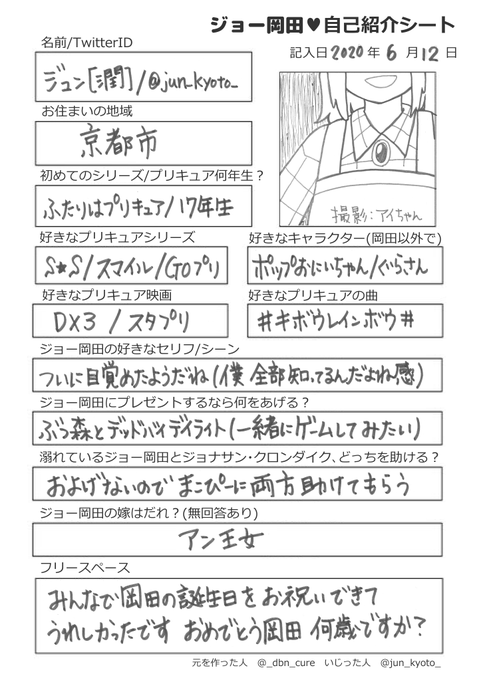 ジョー岡田♥自己紹介シート
名前/TwitterID
記入日2020年6月12日
ジュン[潤]/@jun_kyoto_
お住まいの地域
京都市
初めてのシリーズ/プリキュア何年生？
ふたりはプリキュア/17年生
撮影:アイちゃん
好きなプリキュアシリーズ
好きなキャラクター(岡田以外で)
S★S/スマイル/GOプリ
ポップおにいちゃん/ぐらさん
好きなプリキュア映画
好きなプリキュアの曲
DX3/スタプリ
#キボウレインボウ#
ジョー岡田の好きなセリフ/シーン
ついに目覚めたようだね(僕全部知ってるんだよね感)
ジョー岡田にプレゼントするなら何をあげる？
ぶつ森とデッドバイデイライト(一緒にゲームしてみたい)
溺れているジョー岡田とジョナサン・クロンダイク、どっちを助ける？
およげないのでまこぴーに両方助けてもらう
ジョー岡田の嫁はだれ？(無回答あり)
アン王女
フリースペース
みんなで岡田の誕生日をお祝いできて
うれしかったです おめでとう岡田 何歳ですか？
元を作った人 @_dbn_cure いじった人 @jun_kyoto_